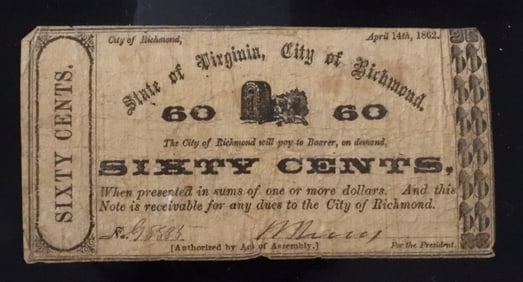 City of Richmond, April 14th, 1862.
State of Virginia, City of Richmond.
60 60
The City of Richmond will pay to Bearer, on demand,
SIXTY CENTS,
When presented in sums of one or more dollars. And this
Note is receivable for any dues to the City of Richmond.
No.
[Authorized by Act of Assembly.] For the President.
SIXTY CENTS.